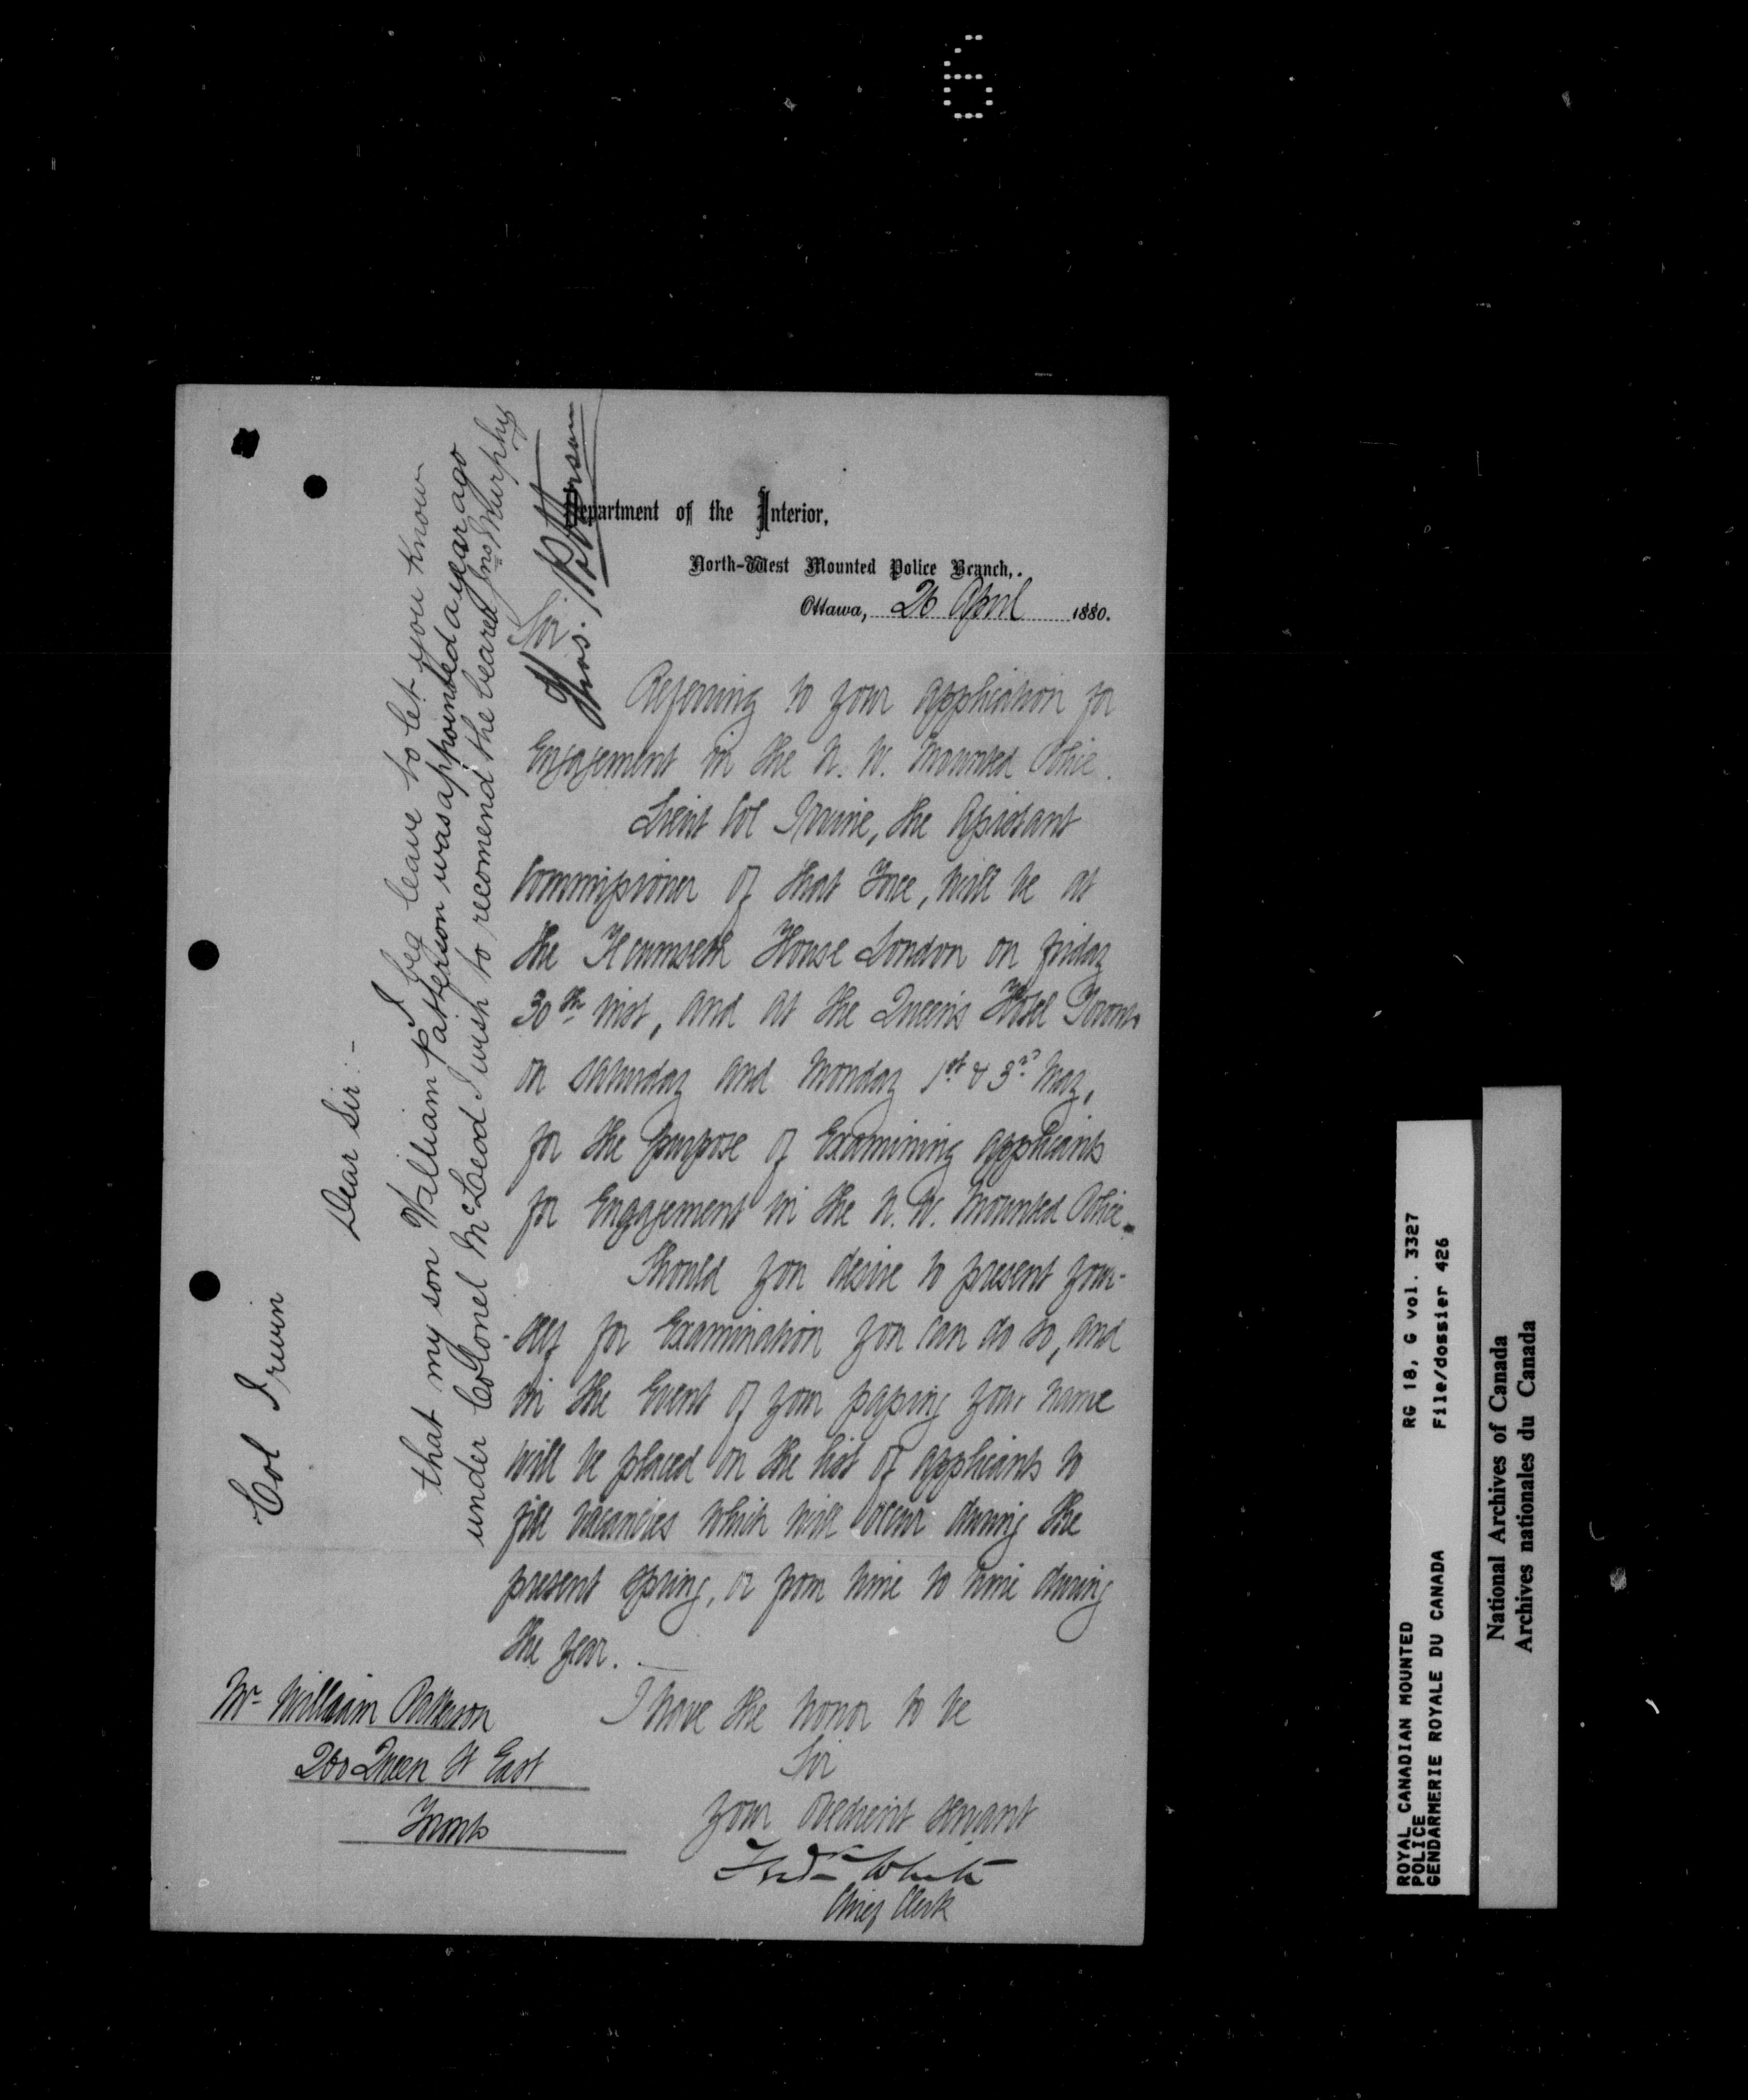 6
Department of the Interior,
North-West Mounted Police Branch,.
Ottawa, 26 April 1880.
Sir
Referring to your application for
Engagement in the N. W. Mounted Police.
Lieut Col Irvine, the Assistant
Commissioner of that Force, will be at
the Tecumseth House London on Friday
30th inst, and at the Queen's Hotel Toronto
on Saturday and Monday 1st & 3rd May,
for the purpose of Examining applicants
for Engagement in the N. W. Mounted Police.
Should you desire to present your-
-self for Examination you can do so, and
in the Event of your passing your name
will be placed on the list of applicants to
fill vacancies which will occur during the
present Spring, or from time to time during
the year.
I have the honor to be
Sir
Your obedient servant
Fred White
Chief Clerk
Mr William Patterson
200 Queen St East
Toronto
Col Irwin
Dear Sir:-
I beg leave to let you know
that my son William Patterson was appointed a year ago
under Colonel McLeod I wish to recomend the bearer Jno Murphy
Thos. Patterson
ROYAL CANADIAN MOUNTED
POLICE
GENDARMERIE ROYALE DU CANADA
RG 18, G vol. 3327
File/dossier 426
National Archives of Canada
Archives nationales du Canada